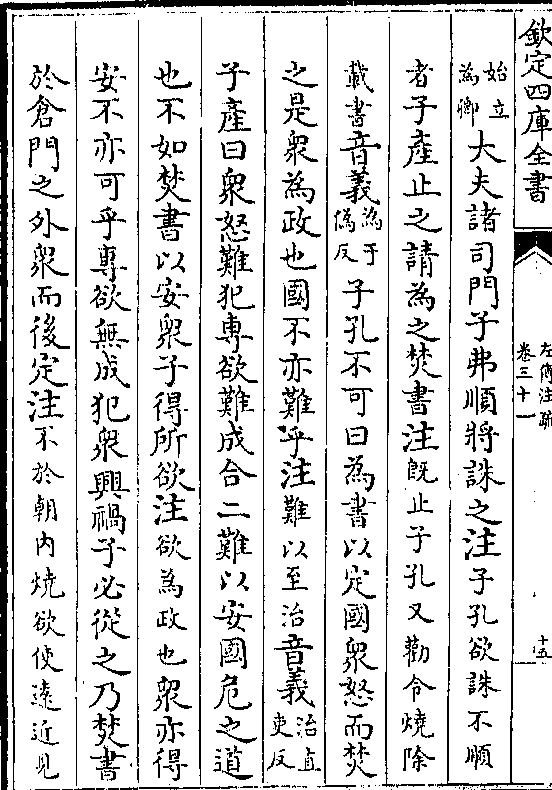 欽定四庫全書
左傳注疏
卷三十一
十五
始立
為卿
大夫諸司門子弗順將誅之注子孔欲誅不順
者子產止之請為之焚書注既止子孔又勸令燒除
載書音義為于
偽反
子孔不可曰為書以定國衆怒而焚
之是衆為政也國不亦難乎注難以至治音義治直
吏反
子產曰衆怒難犯專欲難成合二難以安國危之道
也不如焚書以安衆子得所欲注欲為政也衆亦得
安不亦可乎專欲無成犯衆興禍子必從之乃焚書
於倉門之外衆而後定注不於朝內燒欲使遠近見